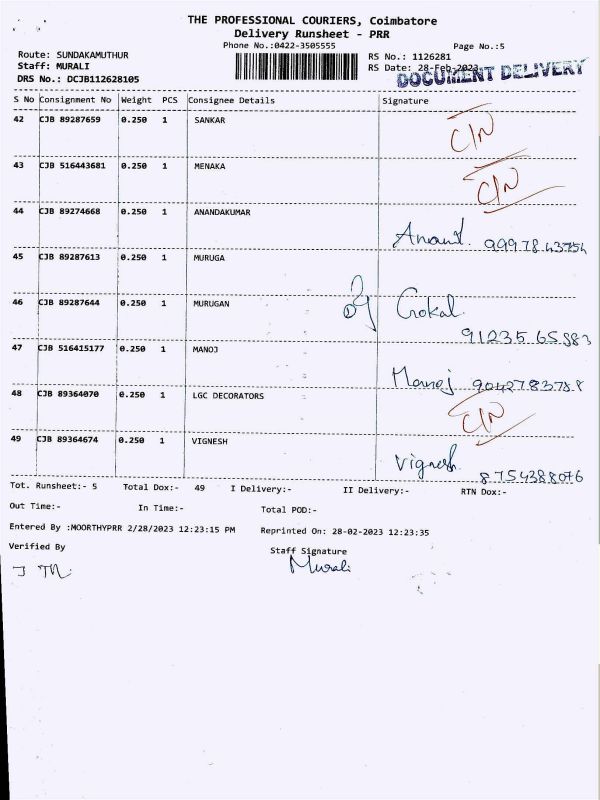 THE PROFESSIONAL COURIERS, Coimbatore
Delivery Runsheet - PRR
Phone No.:0422-3505555
Page No.:5
Route: SUNDAKAMUTHUR
RS No.: 1126281
Staff: MURALI
RS Date: 28-Feb-2023
DOCUMENT DELIVERY
DRS No.: DCJB112628105
S No Consignment No Weight PCS Consignee Details Signature
42 CJB 89287659 0.250 1 SANKAR
C/N
43 CJB 516443681 0.250 1 MENAKA
C/N
44 CJB 89274668 0.250 1 ANANDAKUMAR
Anand. 9997843754
45 CJB 89287613 0.250 1 MURUGA
46 CJB 89287644 0.250 1 MURUGAN
Gokal
91235 65983
47 CJB 516415177 0.250 1 MANOJ
Manoj 9042783788
48 CJB 89364070 0.250 1 LGC DECORATORS
C/N
49 CJB 89364674 0.250 1 VIGNESH
Vignesh.
8754388076
Tot. Runsheet:- 5 Total Dox:- 49 I Delivery:- II Delivery:- RTN Dox:-
Out Time:- In Time:- Total POD:-
Entered By :MOORTHYPRR 2/28/2023 12:23:15 PM Reprinted On: 28-02-2023 12:23:35
Verified By
Staff Signature
Murali